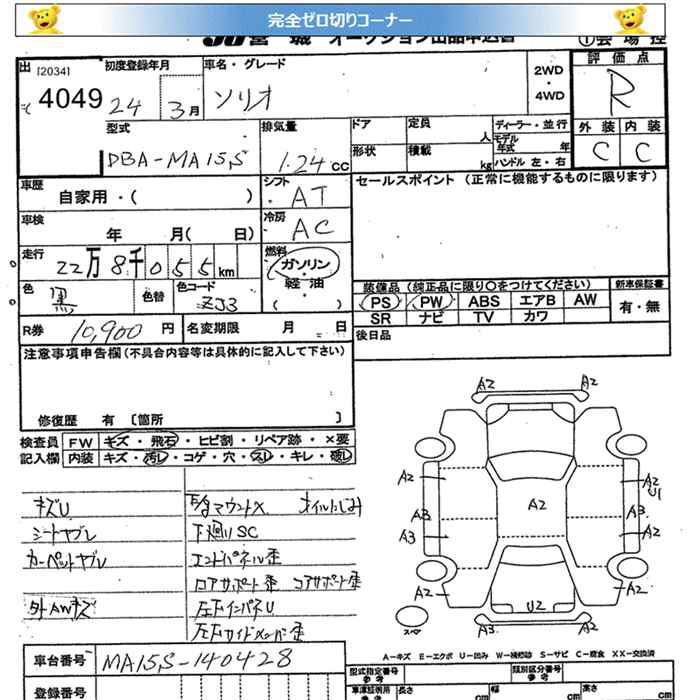 完全ゼロ切りコーナー
JU宮城 オークション出品申込書 ①会場控
出 [2034] 初度登録年月 車名・グレード 2WD ・ 4WD 評価点
4049 24 3月 ソリオ R
型式 排気量 ドア 定員 人 ディーラー・並行 外装 内装
DBA-MA15S 1.24 CC 形状 積載 kg モデル年式 年 ハンドル 左・右 C C
車歴 自家用・( ) シフト AT セールスポイント (正常に機能するものに限ります)
車検 年 月( 日) 冷房 AC
走行 22万8千055km 燃料 ガソリン・軽油 ( )
色 黒 色替 色コード ZJ3 装備品(純正品に限り○をつけてください) 新車保証書
PS PW ABS エアB AW 有・無
SR ナビ TV カワ
R券 10,900円 名変期限 月 日 後日品
注意事項申告欄(不具合内容等は具体的に記入して下さい)
修復歴 有 [箇所 ]
検査員 FW キズ・飛石・ヒビ割・リペア跡・×要
記入欄 内装 キズ・汚レ・コゲ・穴・スレ・キレ・破レ
キズU マウントX オイルにじみ
シートヤブレ 下廻りSC
カーペットヤブレ エンドパネル歪
ロアサポート歪 コアサポート歪
外AWキズ 左F インパネU
左Fサイドメンバー歪
A2 A2
A2 A2 U1
A2
A3 A3
A3 A2
A2 A2
U2
スペア A3 A2
A-キズ E-エクボ U-凹み W-補修跡 S-サビ C-腐食 XX-交換済
車台番号 MA15S-140428
型式指定番号 参考 類別区分番号 参考
登録番号 車庫証明用 参考 長さ cm 幅 cm 高さ cm